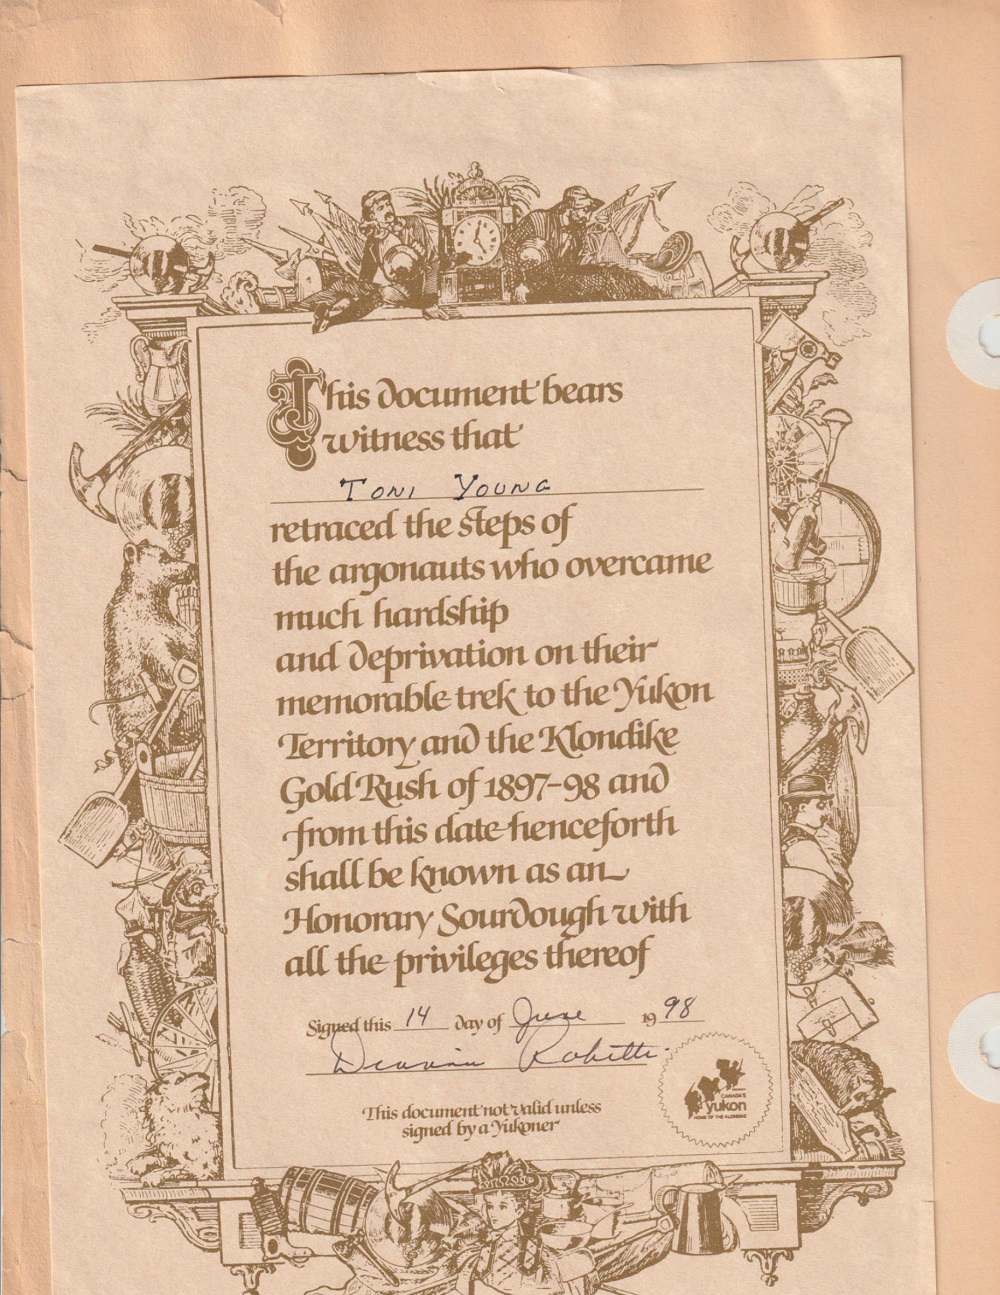 This document bears
witness that
TONI YOUNG
retraced the steps of
the argonauts who overcame
much hardship
and deprivation on their
memorable trek to the Yukon
Territory and the Klondike
Gold Rush of 1897-98 and
from this date henceforth
shall be known as an
Honorary Sourdough with
all the privileges thereof
Signed this 14 day of June 1998
This document not valid unless
signed by a Yukoner
CANADA'S
yukon
HOME OF THE KLONDIKE